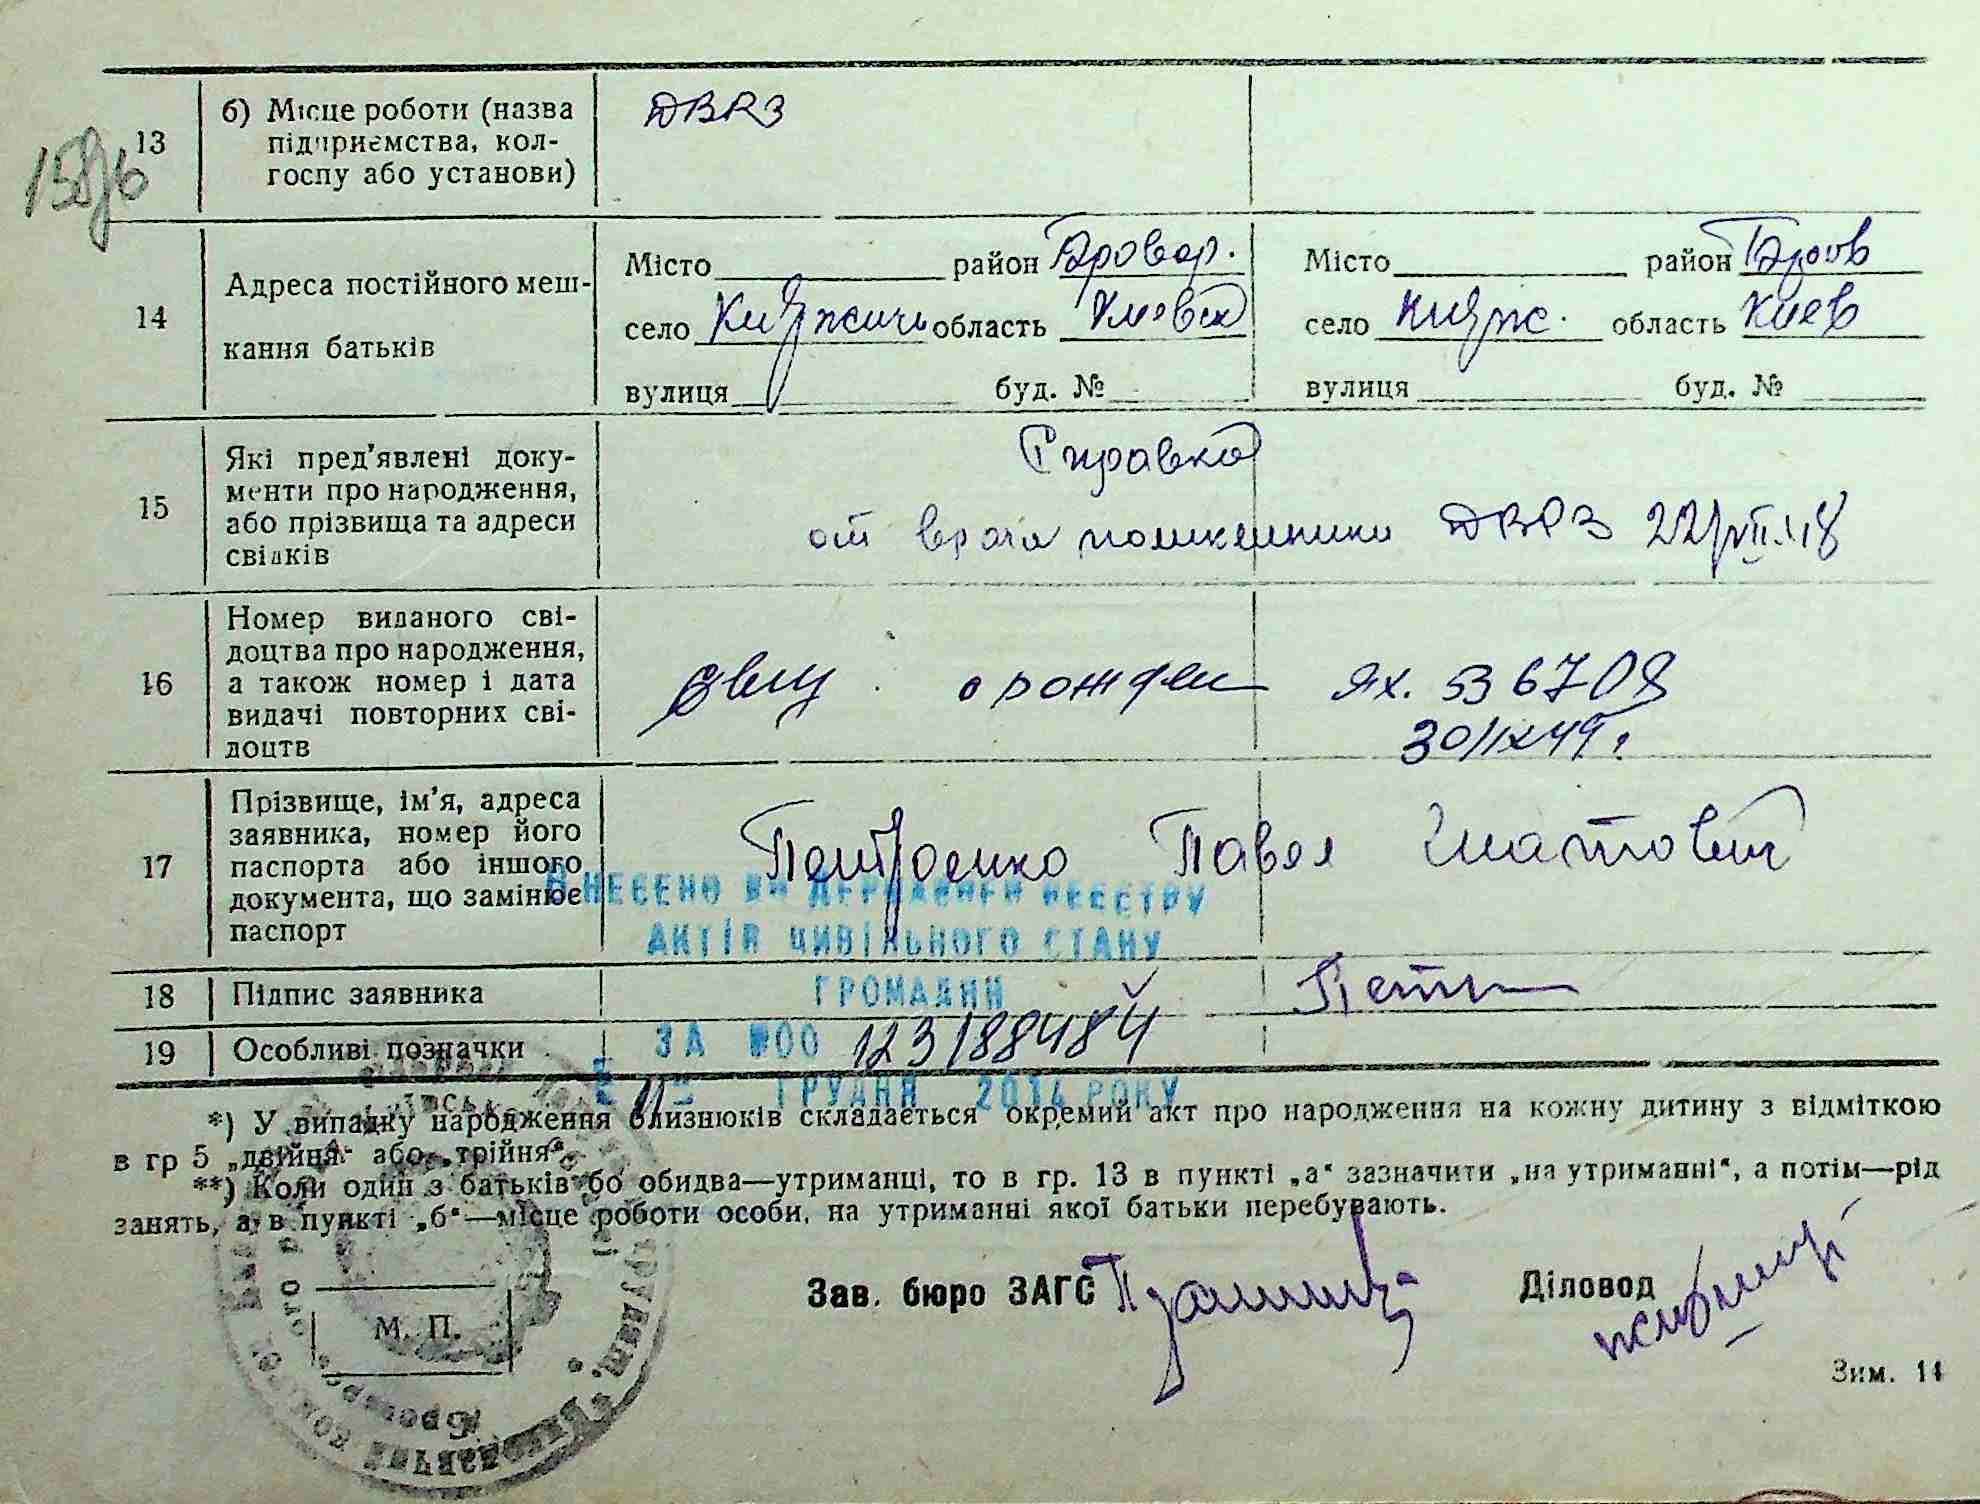 13
б) Місце роботи (назва
підприємства, кол-
госпу або установи)
ДВРЗ
14
Адреса постійного меш-
кання батьків
Місто район Бровар.
село Княжичи область Киевск
вулиця буд. №
Місто район Бров
село Княж. область Киев
вулиця буд. №
15
Які пред'явлені доку-
менти про народження,
або прізвища та адреси
свідків
Справка
от врача поликлиники ДВРЗ 22/VII.48
16
Номер виданого сві-
доцтва про народження,
а також номер і дата
видачі повторних сві-
доцтв
о рожден ЯХ. 536708
30/IX 49 г.
17
Прізвище, ім'я, адреса
заявника, номер його
паспорта або іншого
документа, що замінює
паспорт
Петроенко Павел
ВНЕСЕНО ДО ДЕРЖАВНОГО РЕЄСТРУ
АКТІВ ЦИВІЛЬНОГО СТАНУ
ГРОМАДЯН
18
Підпис заявника
19
Особливі позначки
ЗА №00 123188484
11 ГРУДНЯ 2014 РОКУ
*) У випадку народження близнюків складається окремий акт про народження на кожну дитину з відміткою
в гр 5 „двійня“ або „трійня“.
**) Коли один з батьків бо обидва—утриманці, то в гр. 13 в пункті „а“ зазначити „на утриманні“, а потім—рід
занять, а в пункті „б“—місце роботи особи, на утриманні якої батьки перебувають.
Зав. бюро ЗАГС
Діловод
М. П.
Зим. 14